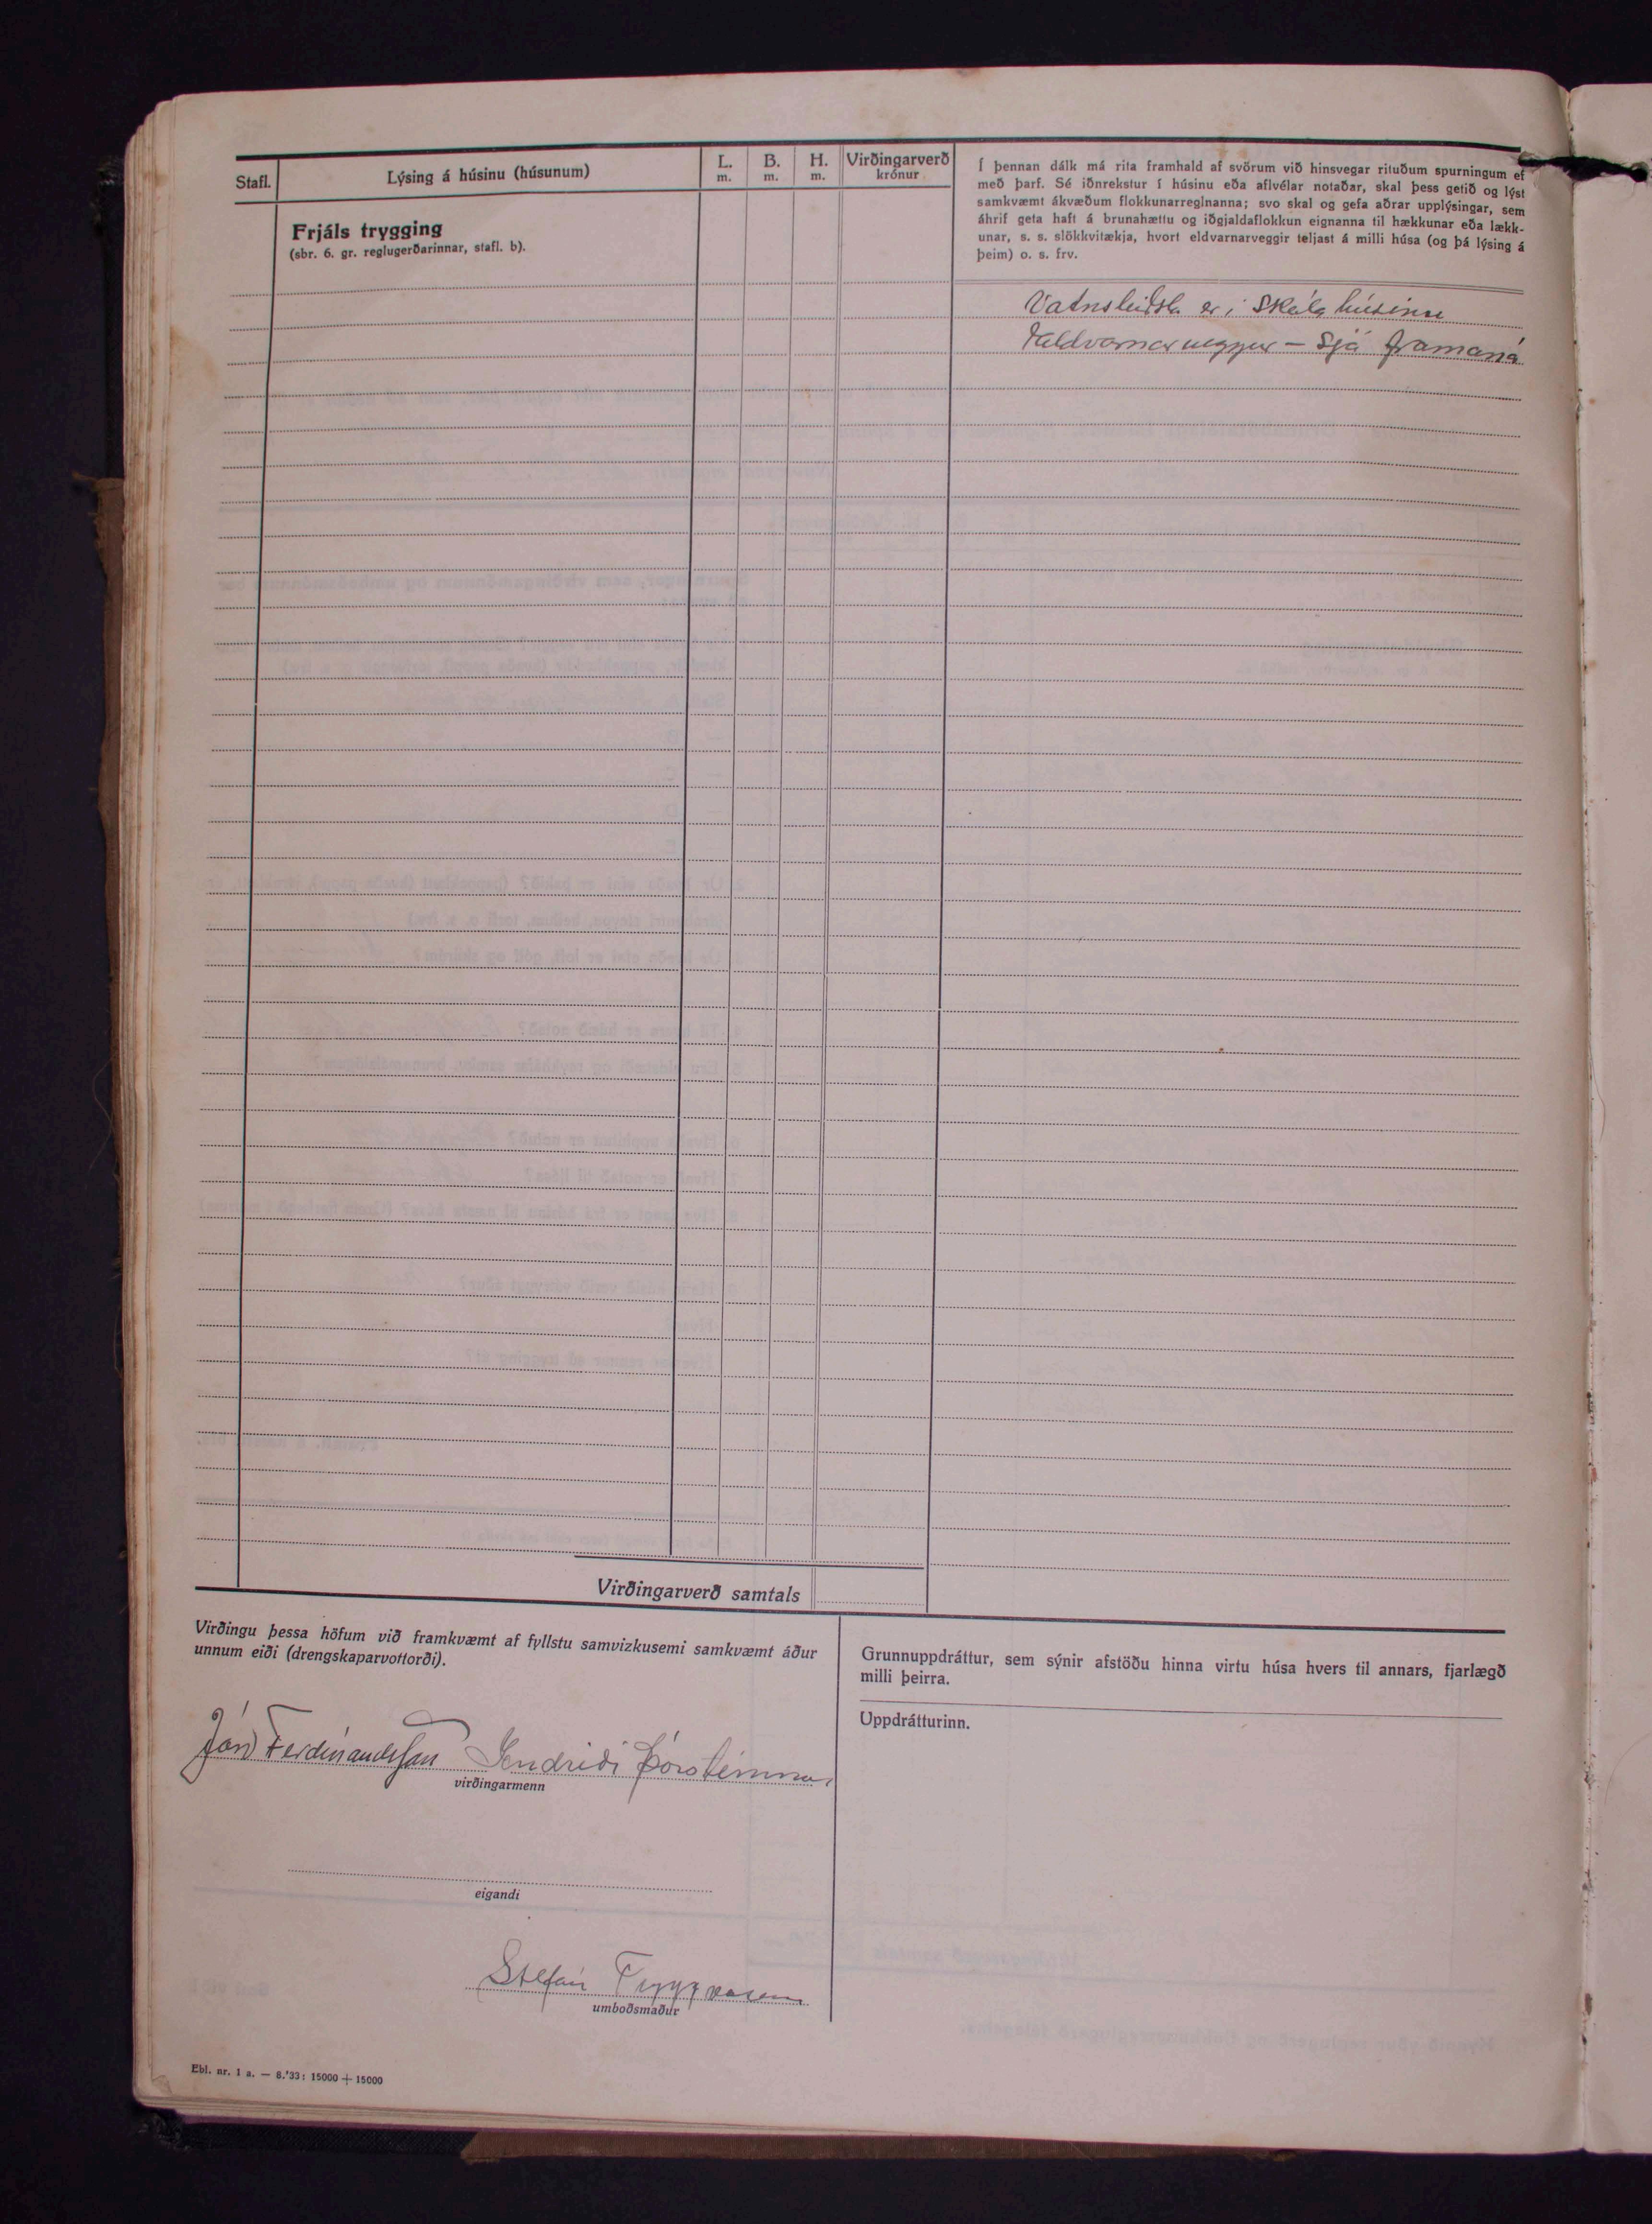 Stafl.
Lýsing á húsinu (húsunum)
L.
m.
B.
m.
H.
m.
Virðingarverð
krónur
Frjáls trygging
(sbr. 6. gr. reglugerðarinnar, stafl. b).
Í þennan dálk má rita framhald af svörum við hinsvegar rituðum spurningum ef
með þarf. Sé iðnrekstur í húsinu eða aflvélar notaðar, skal þess getið og lýst
samkvæmt ákvæðum flokkunarreglnanna; svo skal og gefa aðrar upplýsingar, sem
áhrif geta haft á brunahættu og iðgjaldaflokkun eignanna til hækkunar eða lækk-
unar, s. s. slökkvitækja, hvort eldvarnarveggir teljast á milli húsa (og þá lýsing á
þeim) o. s. frv.
Vatnsleiðsla er í húsinu
Eldvarnarveggur - Sjá framaná
Virðingarverð samtals
Virðingu þessa höfum við framkvæmt af fyllstu samvizkusemi samkvæmt áður
unnum eiði (drengskaparvottorði).
Jón Ferdínandsson Indriði Þórsteinsson
virðingarmenn
eigandi
Stefán Tryggvason
umboðsmaður
Grunnuppdráttur, sem sýnir afstöðu hinna virtu húsa hvers til annars, fjarlægð
milli þeirra.
Uppdrátturinn.
Ebl. nr. 1 a. — 8.'33: 15000 + 15000